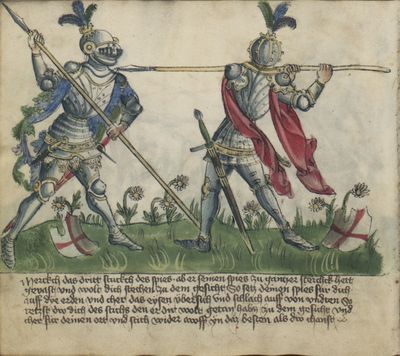 Merckch das dritt stuckch des spies ab er seinen spies zu gantzer sterckch hett
gevast und wolt dich stechen zu dem gesicht So setz deinen spies fur dich
auff dye erden und cher das eysen ubersich und schlach auff von undten So
retzst dw dich des stichs den er dir wolt getan habn zu dem gesicht und
cher fur deinen ort und stich wider awff yn das pesten als dw chanst